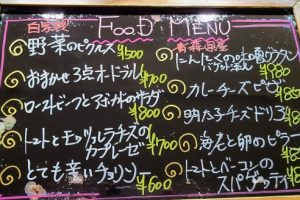 FOOD MENU
白芳澤
野菜のピクルス ¥500
おまかせ3点オードブル ¥700
ローストビーフとアボカドのサラダ ¥800
トマトとモッツァレラチーズの
カプレーゼ ¥700
とても辛いチョリソー ¥600
青森県産
にんにくの
バゲット添え ¥980
カレーチーズピザ ¥85
明太子チーズドリア ¥8
海老と卵のピラ
トマトとベーコンの
スパゲッティ